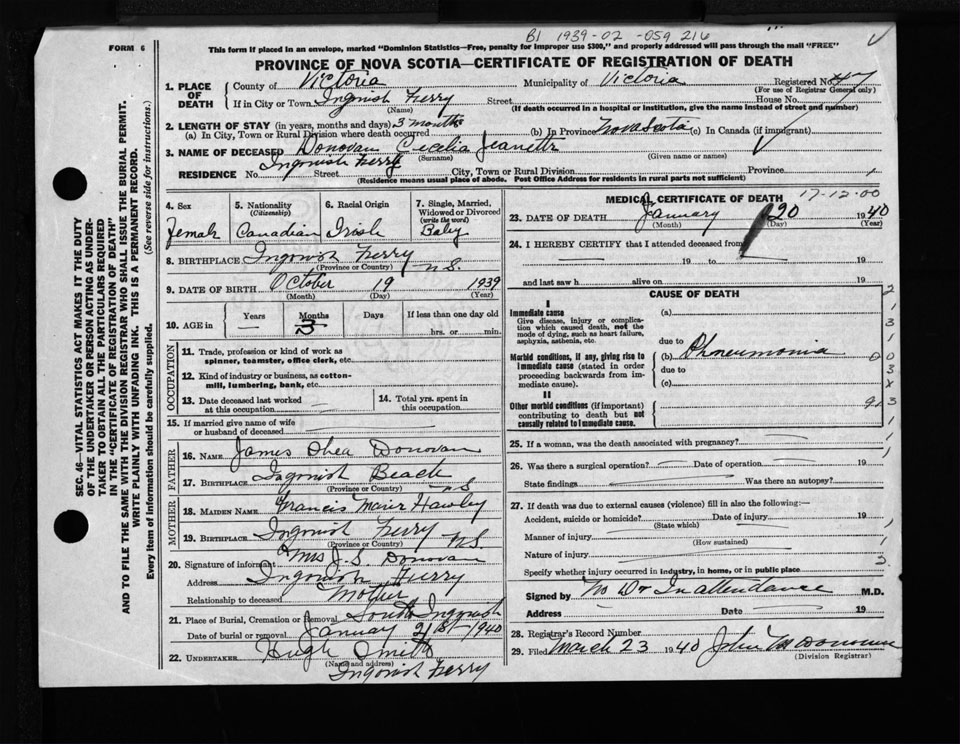 B1 1939-02-059 216
FORM 6
This form if placed in an envelope, marked "Dominion Statistics—Free, penalty for improper use $300," and properly addressed will pass through the mail "FREE"
PROVINCE OF NOVA SCOTIA—CERTIFICATE OF REGISTRATION OF DEATH
SEC. 46—VITAL STATISTICS ACT MAKES IT THE DUTY
OF THE UNDERTAKER OR PERSON ACTING AS UNDER-
TAKER TO OBTAIN ALL THE PARTICULARS REQUIRED
IN THE "CERTIFICATE OF REGISTRATION OF DEATH"
AND TO FILE THE SAME WITH THE DIVISION REGISTRAR WHO SHALL ISSUE THE BURIAL PERMIT.
WRITE PLAINLY WITH UNFADING INK. THIS IS A PERMANENT RECORD.
Every item of information should be carefully supplied. (See reverse side for instructions.)
1. PLACE OF DEATH
County of Victoria Municipality of Victoria Registered No. 47
(For use of Registrar General only)
If in City or Town Ingonish Ferry Street House No.
(Name) (If death occurred in a hospital or institution, give the name instead of street and number)
2. LENGTH OF STAY (in years, months and days) 3 months
(a) In City, Town or Rural Division where death occurred (b) In Province Nova Scotia (c) In Canada (if immigrant)
3. NAME OF DECEASED Donovan Cecelia Jeanette
(Surname) (Given name or names)
RESIDENCE No. Ingonish Ferry Street City, Town or Rural Division Province
(Residence means usual place of abode. Post Office Address for residents in rural parts not sufficient)
4. Sex
Female
5. Nationality
(Citizenship)
Canadian
6. Racial Origin
Irish
7. Single, Married,
Widowed or Divorced
(write the word)
Baby
8. BIRTHPLACE Ingonish Ferry N.S.
(Province or Country)
9. DATE OF BIRTH October 19 1939
(Month) (Day) (Year)
10. AGE in
Years Months Days If less than one day old
— 3 hrs. or min.
OCCUPATION
11. Trade, profession or kind of work as
spinner, teamster, office clerk, etc.
12. Kind of industry or business, as cotton-
mill, lumbering, bank, etc.
13. Date deceased last worked
at this occupation
14. Total yrs. spent in
this occupation
15. If married give name of wife
or husband of deceased
FATHER
16. NAME James Shea Donovan
17. BIRTHPLACE Ingonish Beach N.S.
(Province or Country)
MOTHER
18. MAIDEN NAME Francis Marie Hawley
19. BIRTHPLACE Ingonish Ferry N.S.
(Province or Country)
20. Signature of informant Mrs J. S. Donovan
Address Ingonish Ferry
Relationship to deceased Mother
21. Place of Burial, Cremation or Removal South Ingonish
Date of burial or removal January 21st 1940
22. UNDERTAKER Hugh Smith
(Name and address)
Ingonish Ferry
MEDICAL CERTIFICATE OF DEATH 17-12-00
23. DATE OF DEATH January 20 1940
(Month) (Day) (Year)
24. I HEREBY CERTIFY that I attended deceased from
19 to 19
and last saw h alive on 19
CAUSE OF DEATH
I
Immediate cause
Give disease, injury or complica-
tion which caused death, not the
mode of dying, such as heart failure,
asphyxia, asthenia, etc.
(a)
due to
Morbid conditions, if any, giving rise to
immediate cause (stated in order
proceeding backwards from im-
mediate cause).
(b) Phneumonia
due to
(c)
II
Other morbid conditions (if important)
contributing to death but not
causally related to immediate cause.
25. If a woman, was the death associated with pregnancy?
26. Was there a surgical operation? Date of operation 19
State findings Was there an autopsy?
27. If death was due to external causes (violence) fill in also the following:—
Accident, suicide or homicide? Date of injury 19
(State which)
Manner of injury
(How sustained)
Nature of injury
Specify whether injury occurred in industry, in home, or in public place
Signed by No Dr In attendance M.D.
Address Date 19
28. Registrar's Record Number
29. Filed March 23 1940 John M Donovan
(Division Registrar)